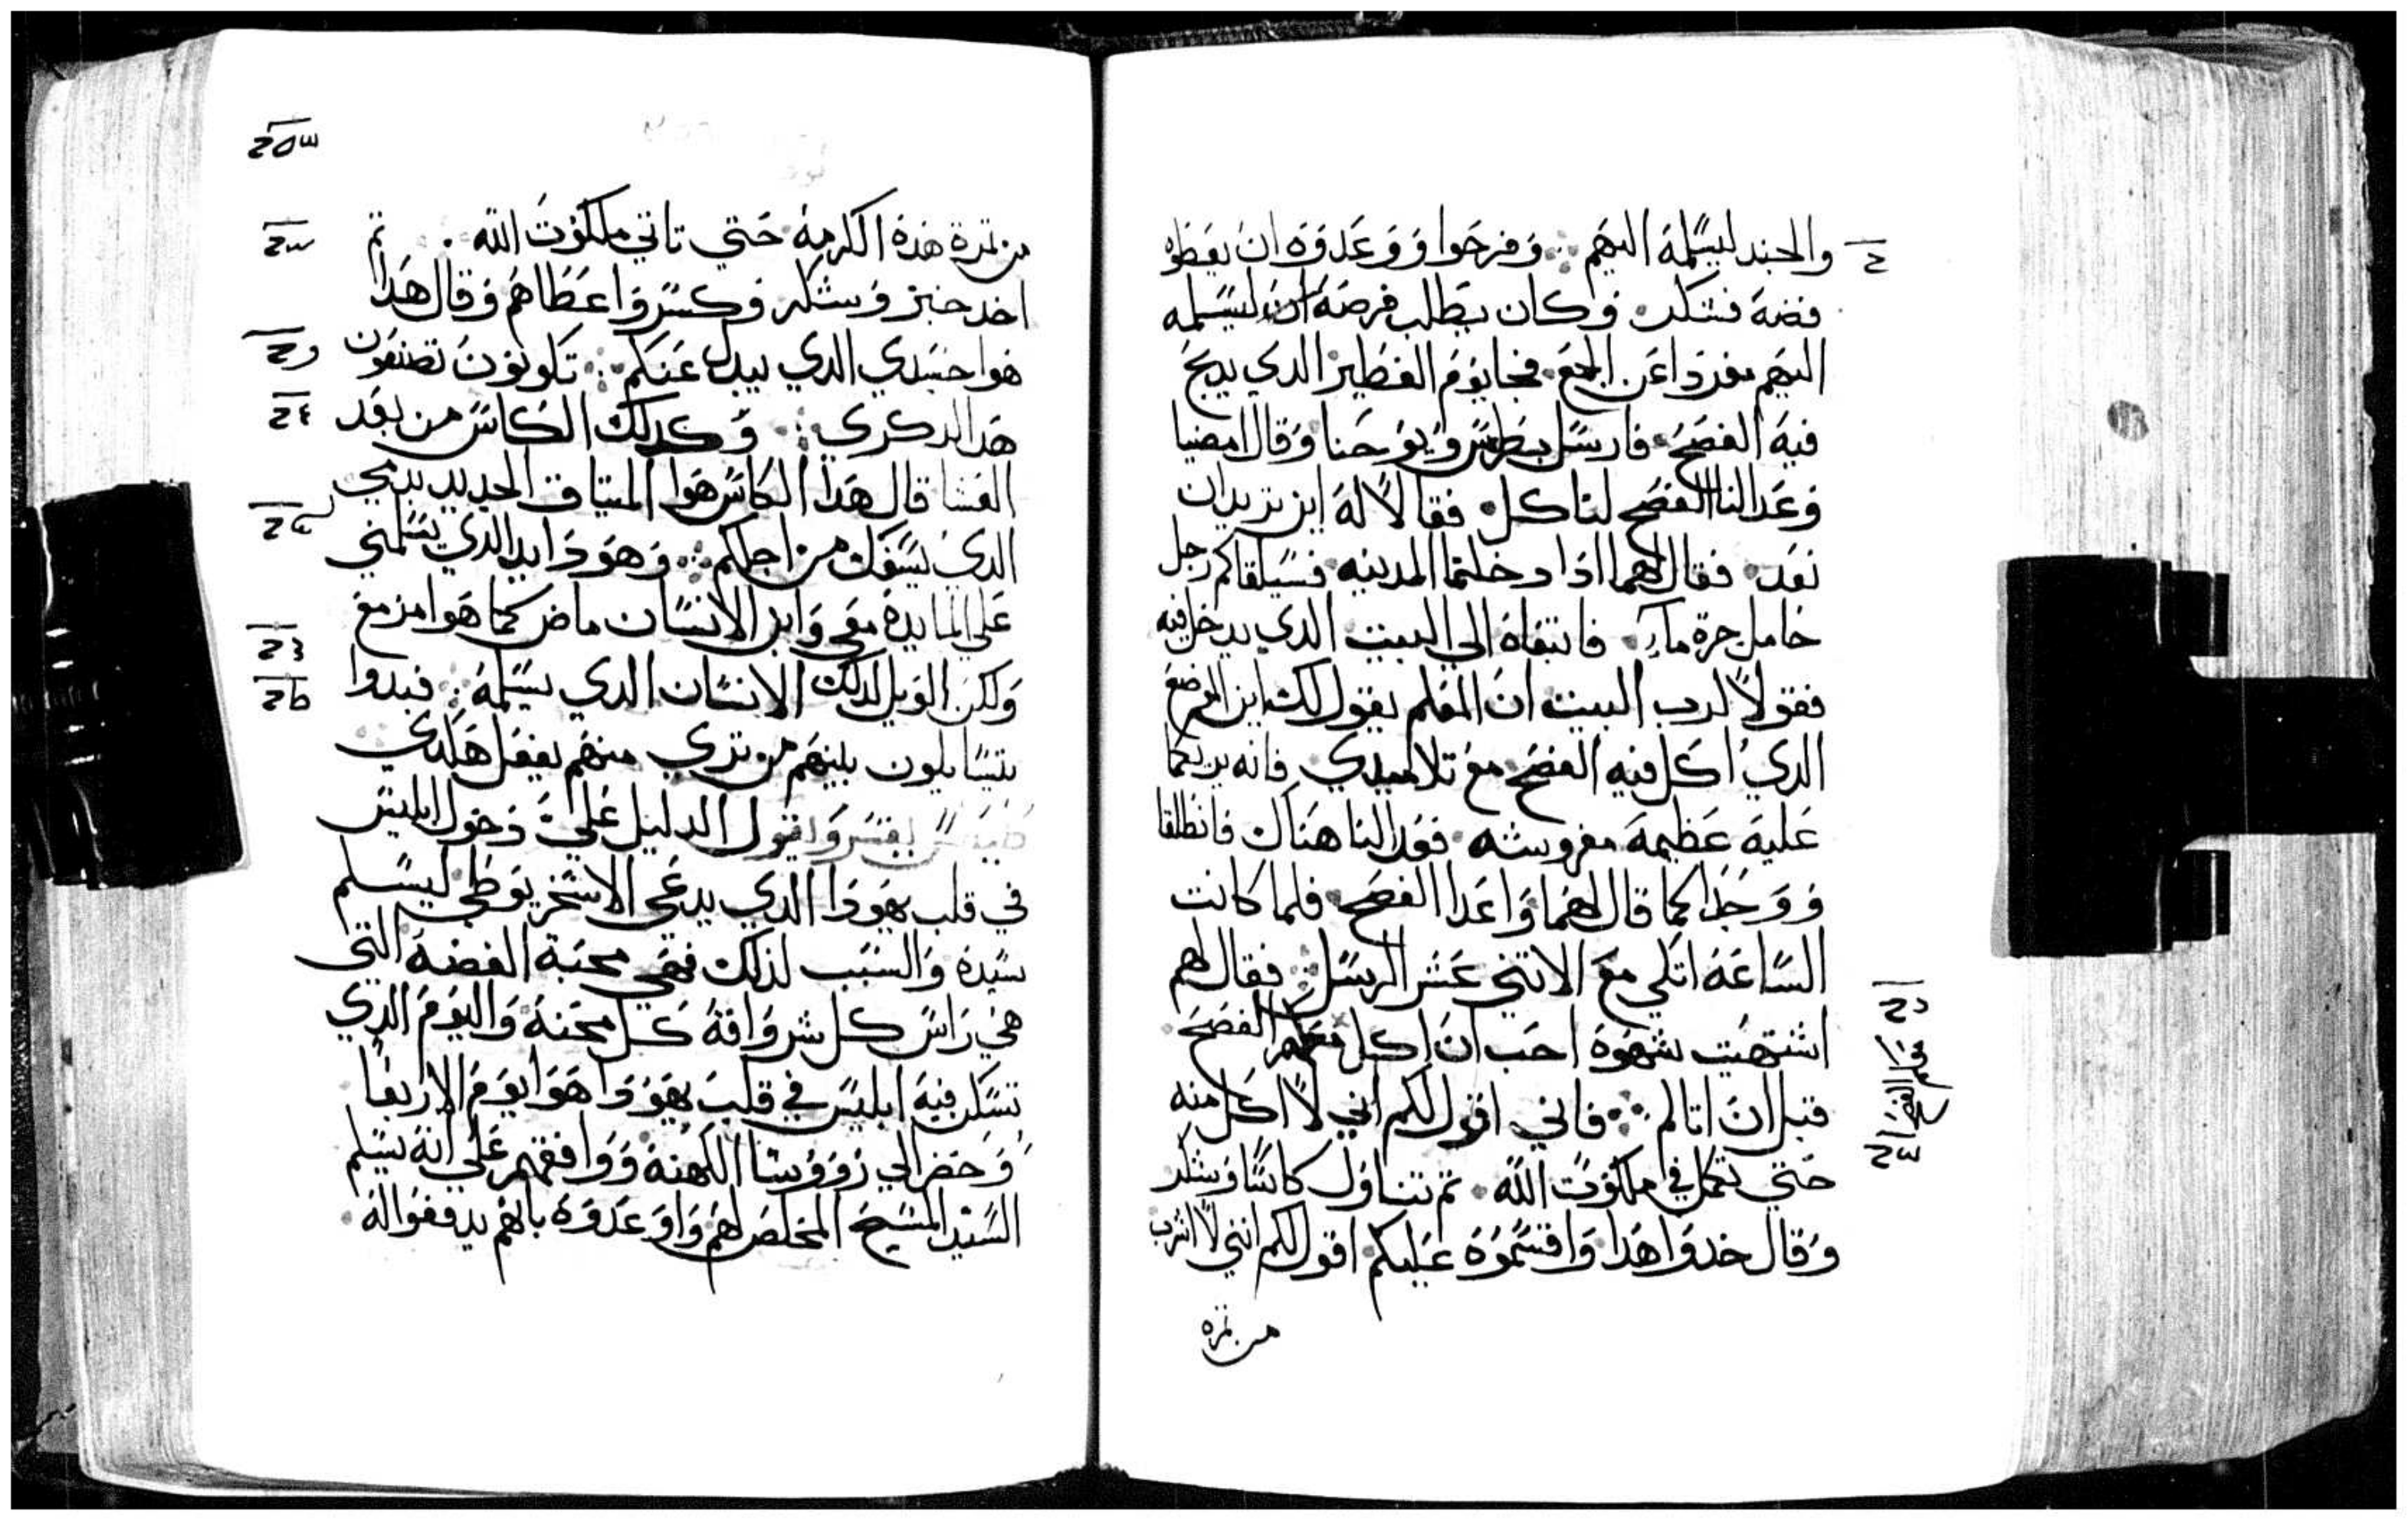 والجند ليسلمه اليهم ؞ وفرحوا ووعدوه ان يعطوه
فضة فشكر وكان يطلب فرصة ليسلمه
اليهم مفردا عن الجمع فجا يوم الفطير الدي يدبح
فيه الفصح فارسل بطرس ويوحنا وقال امضيا
وعدا لنا الفصح لناكل فقالا له اين تريد ان
نعد فقال لهما ادا دخلتما المدينه فسيلقاكم رجل
حامل جرة ماء فاتبعاه الي البيت الدي يدخل فيه
فقولا لرب البيت ان المعلم يقول لك اين الموضع
الدي اكل فيه الفصح مع تلاميدي فانه يريكما
عليه عظيمة مفروشه فعدا لنا هناك فانطلقا
ووجدا كما قال لهما واعدا الفصح فلما كانت
الساعه اتكي مع الاتني عشر الرسل ؞ فقال لهم
اشتهيت شهوة احب ان اكل معكم الفصح
قبل ان اتالم ؞ فاني اقول لكم اني لا اكل منه
حتي تكمل في ملكوت الله تم تناول كاسا وشكر
وقال خدوا هدا واقسموه عليكم اقول لكم انني لا اشرب
من تمرة
معكم الفصح
من تمرة هده الكرمة حتي تاتي ملكوت الله تم
اخد خبز وشكر وكسر واعطاهم وقال هدا
هوا جسدي الدي يبدل عنكم ؞ تكونون تصنعون
هدا لدكري ؞ وكدلك الكاس من بعد
العشا قال هدا الكاس هوا الميتاق الجديد بدمي
الدي يسفك من اجلكم ؞ وهودا يد الدي يسلمني
علي المايدة معي وابن الانسان ماض كما هوا مزمع
ولكن الويل لدلك الانسان الدي يسلمه ؞ فبدوا
يتسايلون بينهم من تري منهم يفعل هكدي
يفسر ويقول الدليل علي دخول ابليس
في قلب يهودا الدي يدعي الاسخريوطي ليسلم
سيده والسبب لدلك فهي محبة الفضة التي
هي راس كل شر وافة كل محنة واليوم الدي
تسكن فيه ابليس في قلب يهودا هوا يوم الاربعا
وحضر الي رووسا الكهنة ووافقهم علي انه يسلم
السيد المسيح المخلص لهم واوعدوه بانهم يدفعوا له